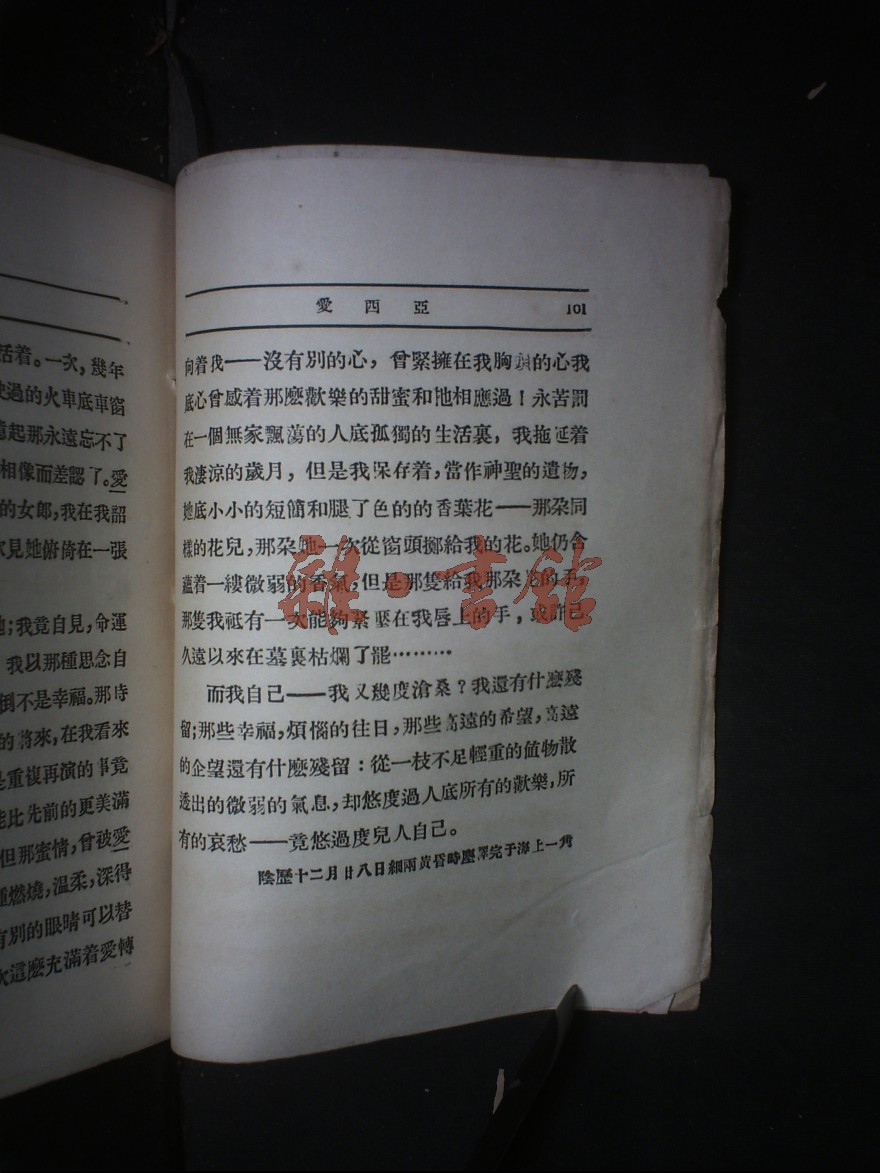 活着。一次，幾年
過的火車底車窗
起那永遠忘不了
相像而差認了。愛
的女郎，我在我韶
見她俯倚在一張
她；我竟自見，命運
我以那種思念自
倒不是幸福。那時
的將來，在我看來
重複再演的事竟
能比先前的更美滿
但那蜜情，曾被愛
燃燒，溫柔，深得
有別的眼晴可以替
次這麽充滿着愛轉
愛西亞 101
向着我——沒有別的心，曾緊擁在我胸頭的心我
底心曾感着那麽歡樂的甜蜜和牠相應過！永苦罰
在一個無家飄蕩的人底孤獨的生活裏，我拖延着
我淒涼的歲月，但是我保存着，當作神聖的遺物，
她底小小的短簡和腿了色的的香葉花——那朶同
樣的花兒，那朶她一次從窗頭擲給我的花。她仍含
蘊着一縷微弱的香氣，但是那隻給我那朶花的手，
那隻我祗有一次能夠緊壓在我唇上的手，或許已
久遠以來在墓裏枯爛了罷………
而我自己——我又幾度滄桑？我還有什麽殘
留；那些幸福，煩惱的往日，那些高遠的希望，高遠
的企望還有什麽殘留：從一枝不足輕重的植物散
透出的微弱的氣息，却悠度過人底所有的歡樂，所
有的哀愁——竟悠過度兒人自己。
陰歷十二月廿八日細雨黃昏時塵譯完于海上一
雜·書館